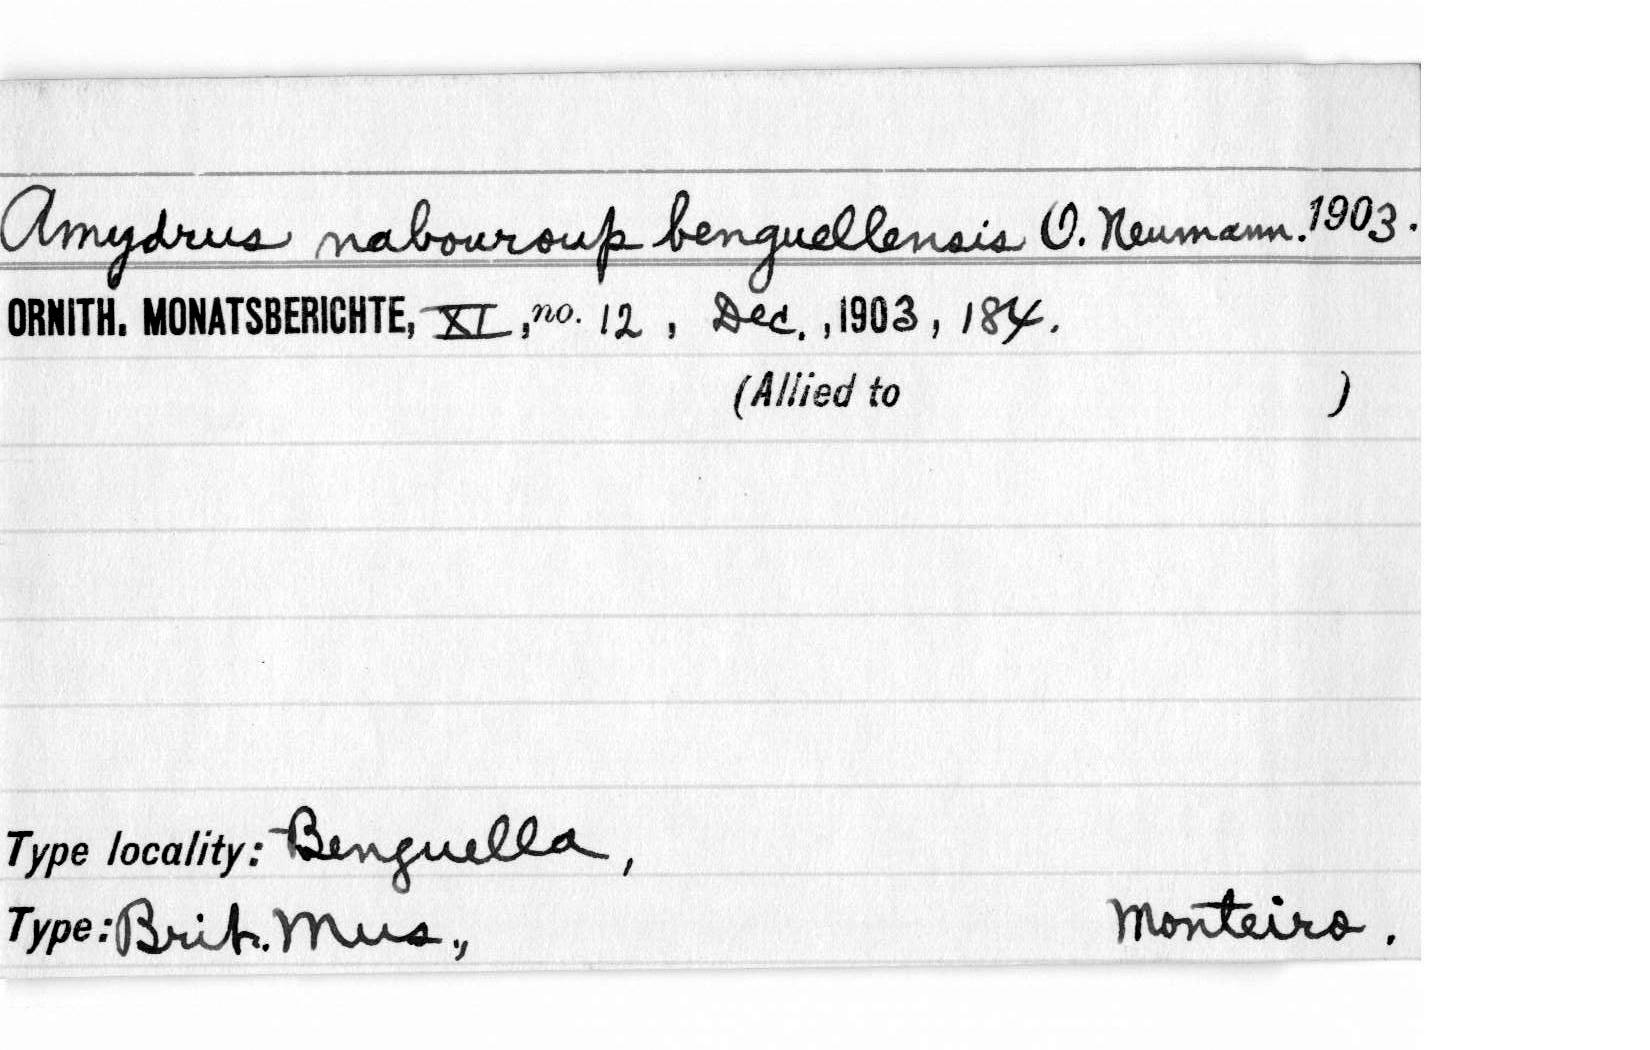 Amydrus nabouroup benguellensis O. Neumann. 1903.
ORNITH. MONATSBERICHTE, XI, no. 12, Dec., 1903, 184.
(Allied to )
Type locality: Benguella,
Type: Brit. Mus., Monteiro.